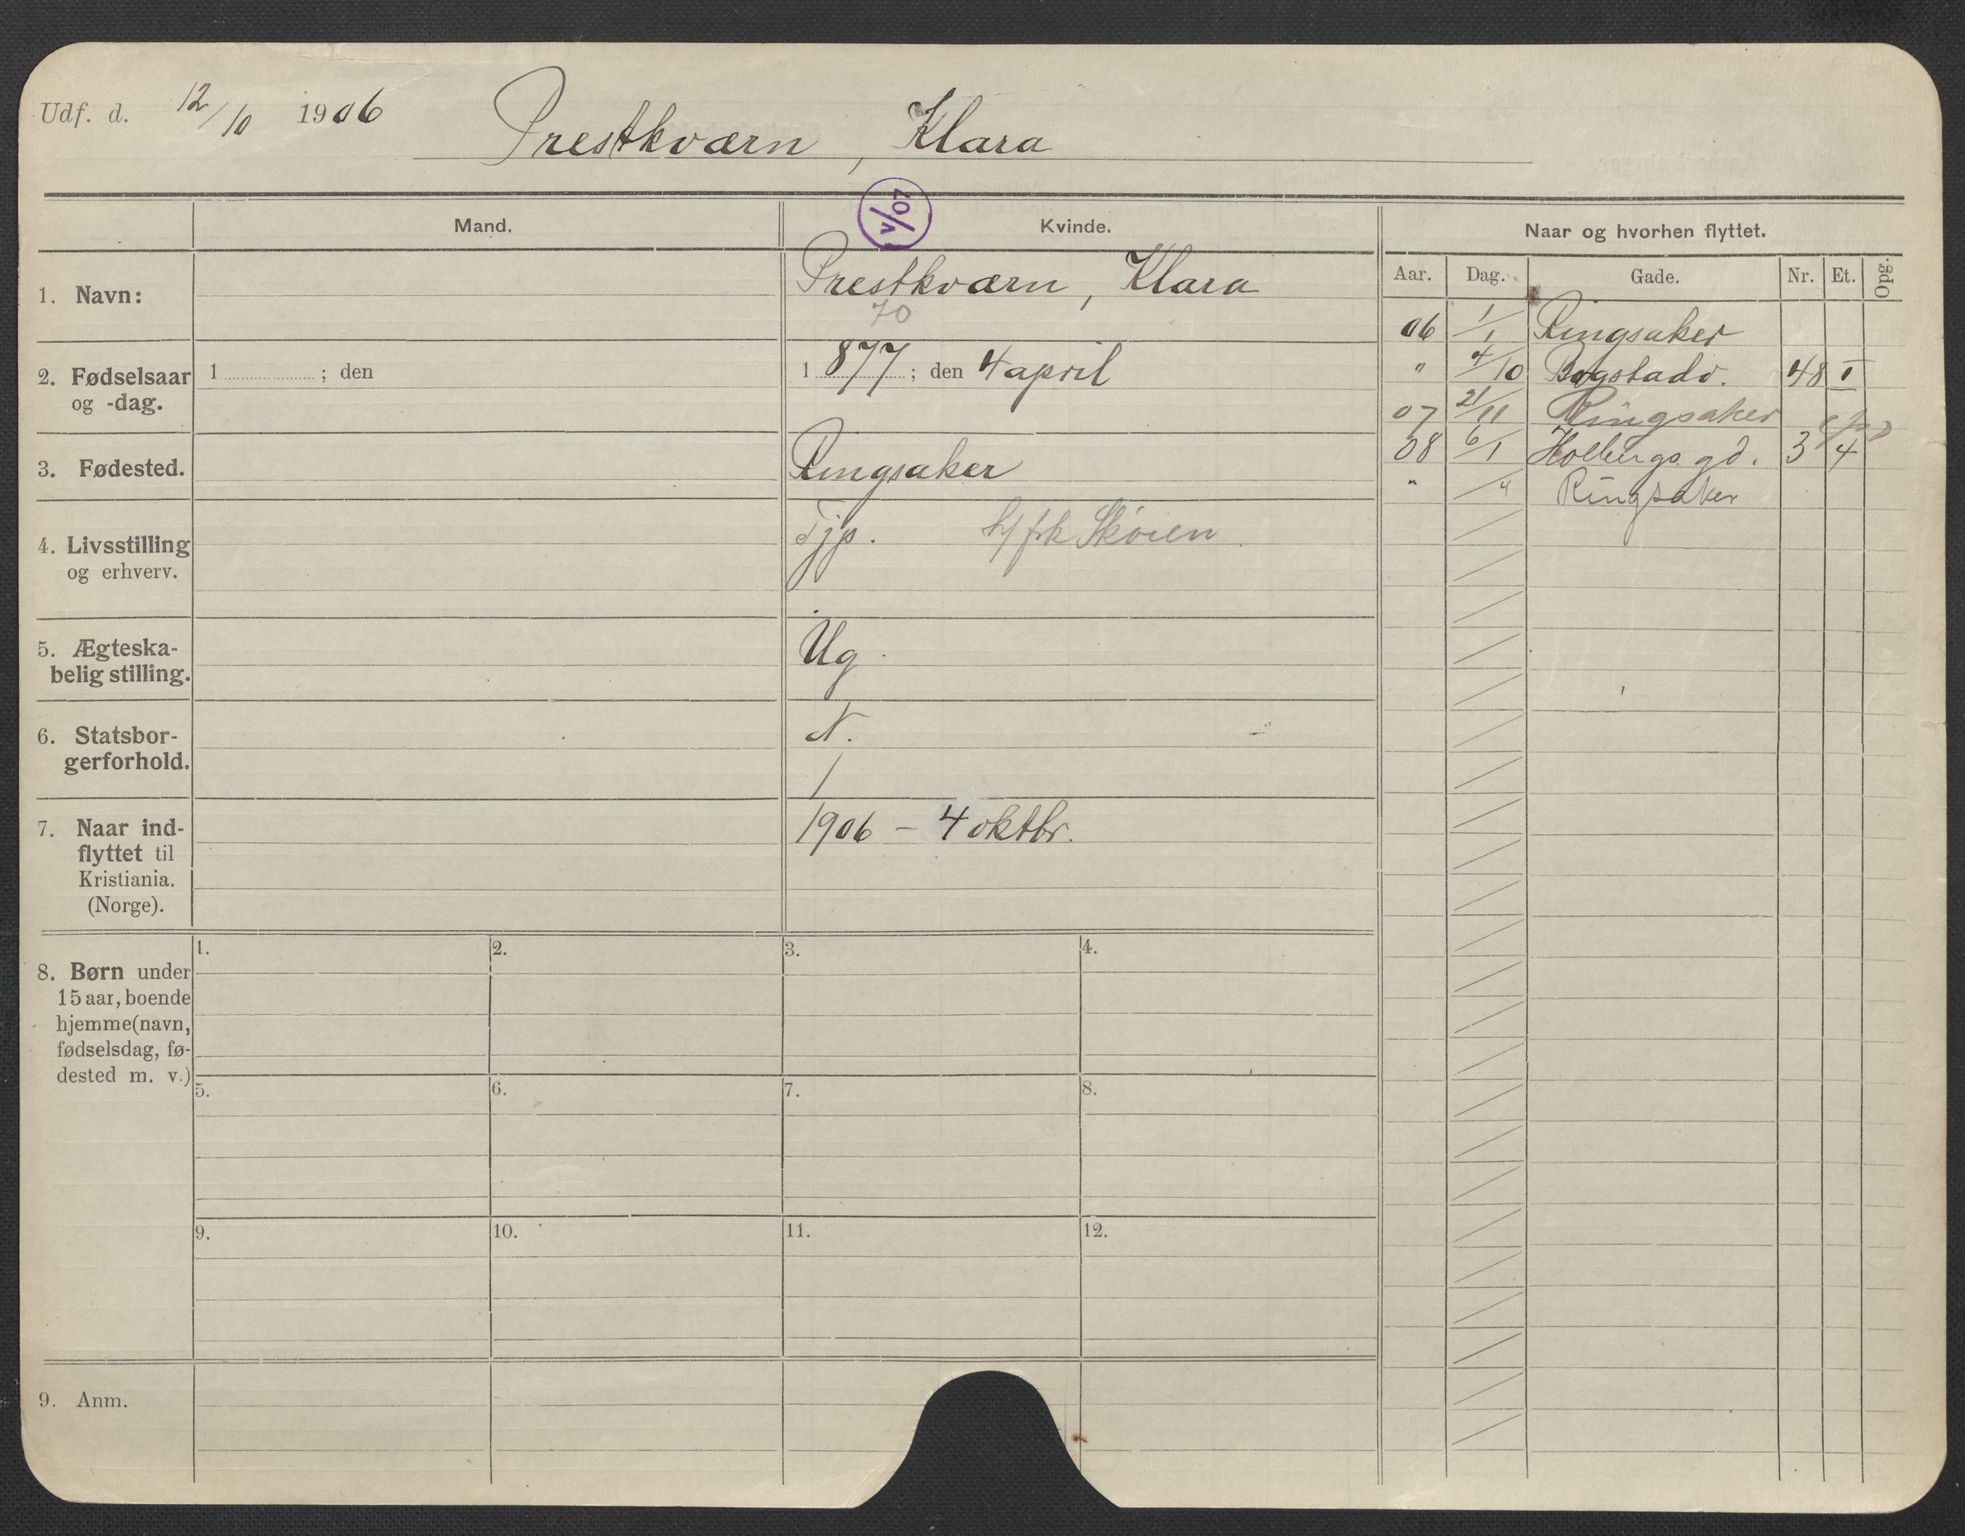 Udf. d. 12/10 1906
Prestkværn, Klara
Mand.
V/07
Kvinde.
Naar og hvorhen flyttet.
Aar. Dag. Gade. Nr. Et. Opg.
1. Navn:
Prestkværn, Klara
70
2. Fødselsaar
og -dag.
1 ; den
1877; den 4 april
3. Fødested.
Ringsaker
4. Livsstilling
og erhverv.
Tjp. h/frk Skøien
5. Ægteska-
belig stilling.
Ug.
6. Statsbor-
gerforhold.
N.
/
7. Naar ind-
flyttet til
Kristiania.
(Norge).
1906 – 4 oktbr.
06 1/1 Ringsaker
" 4/10 Bogstadv. 48 I
07 21/11 Ringsaker
08 6/1 Holbergs gd. 3 4
" /4 Ringsaker
8. Børn under
15 aar, boende
hjemme (navn,
fødselsdag, fø-
dested m. v.)
1. 2. 3. 4.
5. 6. 7. 8.
9. 10. 11. 12.
9. Anm.